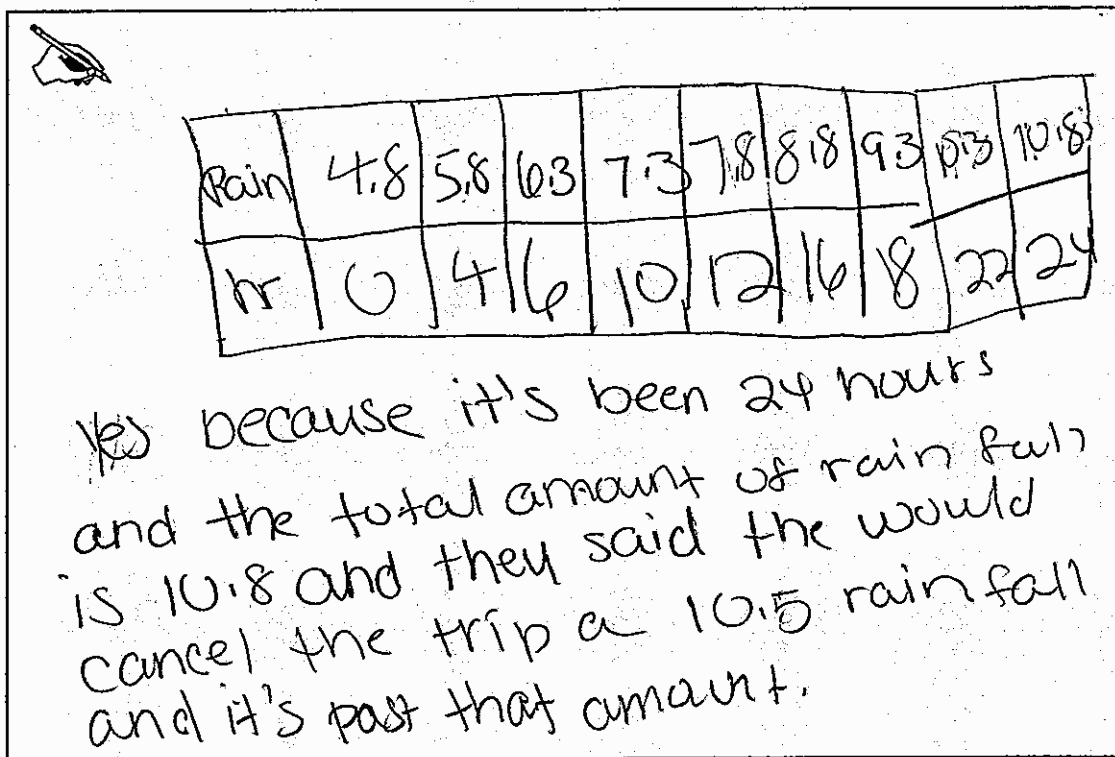 Rain 4.8 5.8 6.3 7.3 7.8 8.8 9.3 10.3 10.8
hr 0 4 6 10 12 16 18 22 24
Yes because it's been 24 hours
and the total amount of rain fall
is 10.8 and they said the would
cancel the trip a 10.5 rainfall
and it's past that amount.